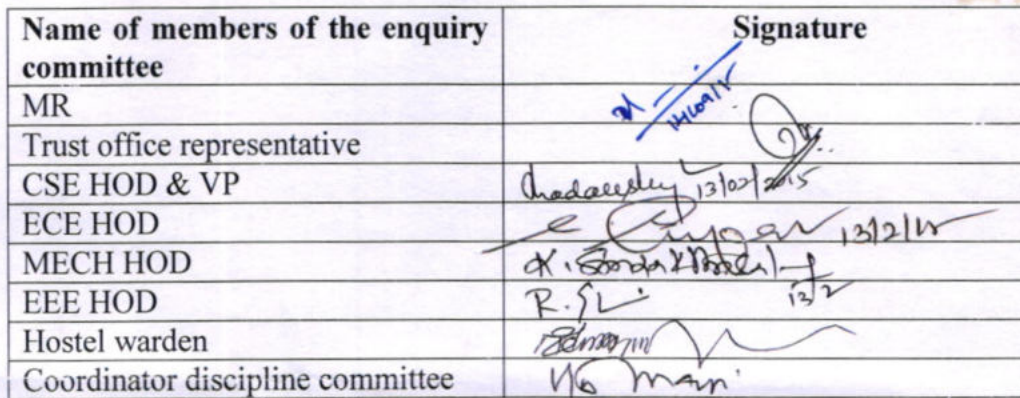 Name of members of the enquiry committee
Signature
MR
Trust office representative
CSE HOD & VP
13/02/2015
ECE HOD
13/2/15
MECH HOD
K.
13/2
EEE HOD
R.
Hostel warden
Coordinator discipline committee